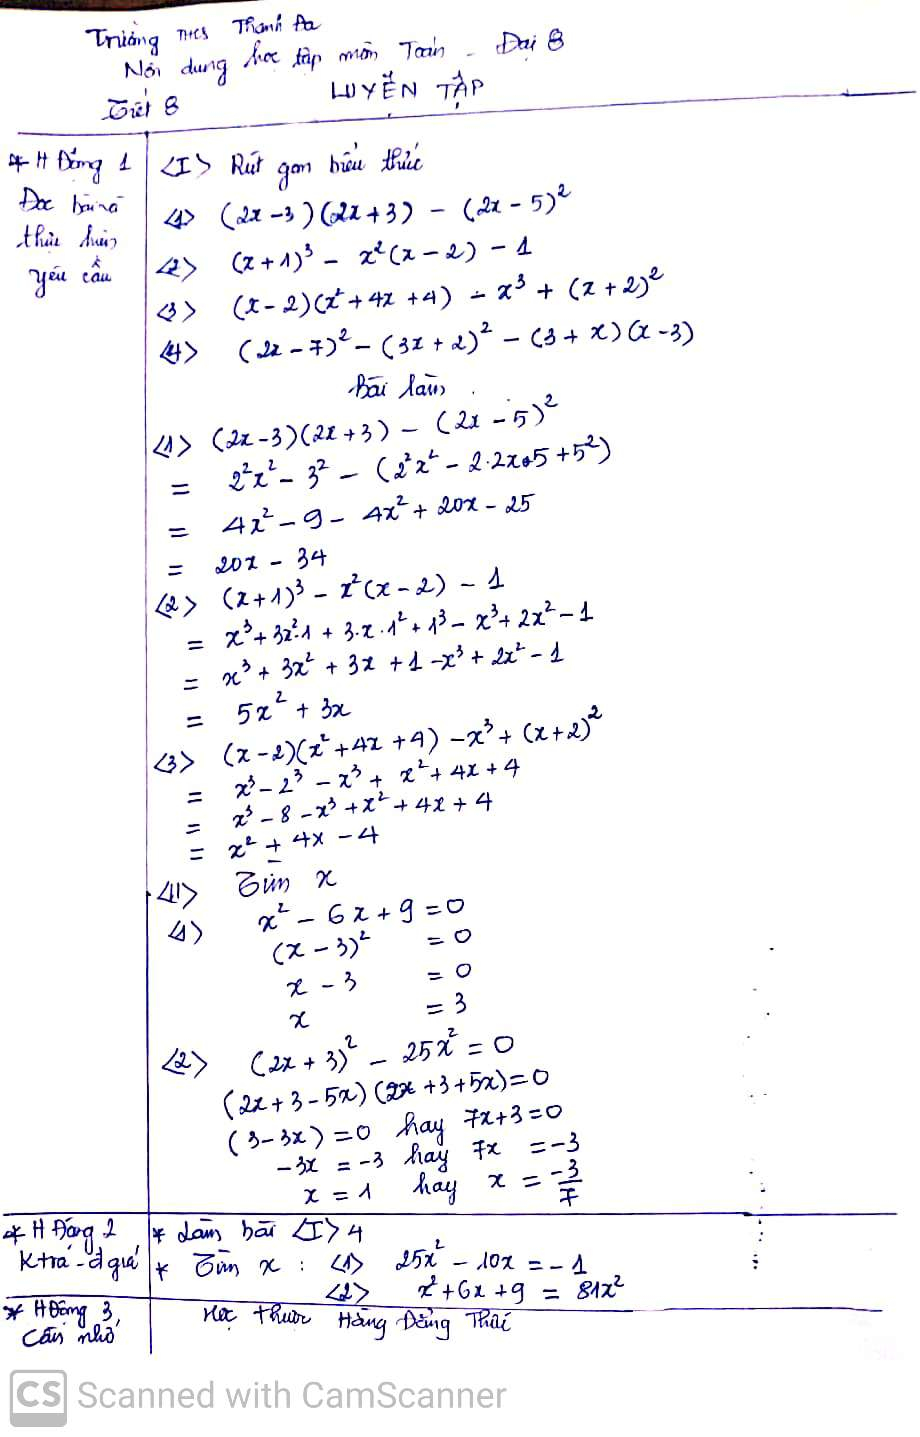 Trường THCS Thanh Đa
Nội dung học tập môn Toán - Đại 8
Tiết 8 LUYỆN TẬP
* H Động 1
Đọc bài và
thực hiện
yêu cầu
<I> Rút gọn biểu thức
<1> (2x-3)(2x+3) - (2x-5)²
<2> (x+1)³ - x²(x-2) - 1
<3> (x-2)(x²+4x+4) - x³ + (x+2)²
<4> (2x-7)² - (3x+2)² - (3+x)(x-3)
Bài làm
<1> (2x-3)(2x+3) - (2x-5)²
= 2²x² - 3² - (2²x² - 2.2x.5 + 5²)
= 4x² - 9 - 4x² + 20x - 25
= 20x - 34
<2> (x+1)³ - x²(x-2) - 1
= x³ + 3x².1 + 3.x.1² + 1³ - x³ + 2x² - 1
= x³ + 3x² + 3x + 1 - x³ + 2x² - 1
= 5x² + 3x
<3> (x-2)(x²+4x+4) - x³ + (x+2)²
= x³ - 2³ - x³ + x² + 4x + 4
= x³ - 8 - x³ + x² + 4x + 4
= x² + 4x - 4
<II> Tìm x
<1> x² - 6x + 9 = 0
(x-3)² = 0
x - 3 = 0
x = 3
<2> (2x+3)² - 25x² = 0
(2x+3-5x)(2x+3+5x) = 0
(3-3x) = 0 hay 7x+3 = 0
-3x = -3 hay 7x = -3
x = 1 hay x = -3/7
* H Động 2
K tra - đ giá
* Làm bài <I> 4
* Tìm x : <1> 25x² - 10x = -1
<2> x² + 6x + 9 = 81x²
* H Động 3
Cần nhớ
Học thuộc Hằng Đẳng Thức
CS Scanned with CamScanner